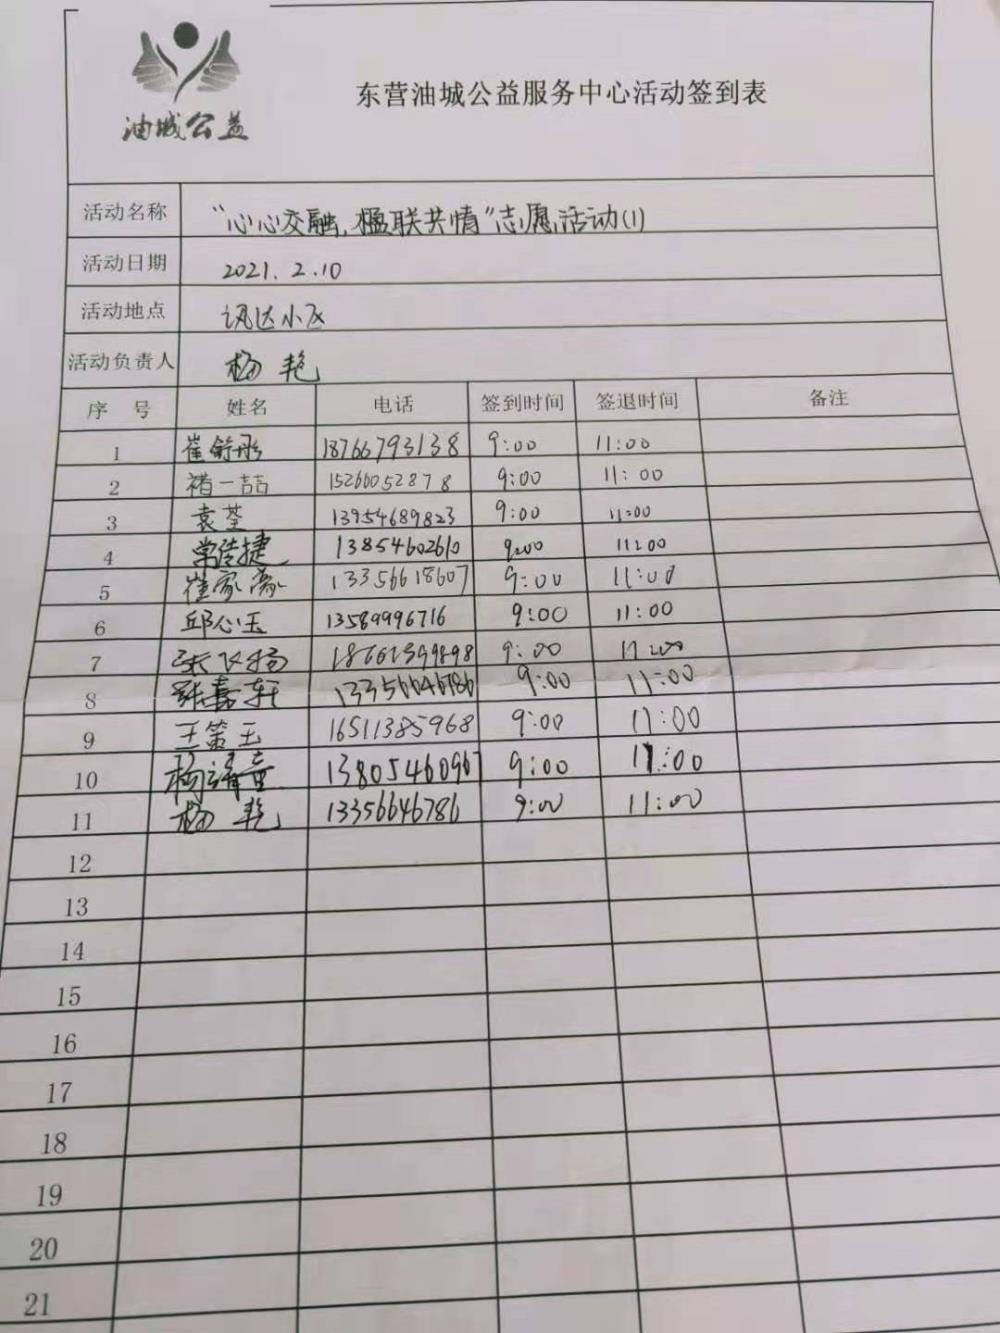 油城公益
东营油城公益服务中心活动签到表
活动名称 “心心交融,楹联共情”志愿活动(1)
活动日期 2021.2.10
活动地点 讯达小区
活动负责人 杨艳
序号 姓名 电话 签到时间 签退时间 备注
1 崔舒彤 18766793138 9:00 11:00
2 褚一喆 15266052878 9:00 11:00
3 袁荃 13954689823 9:00 11:00
4 常佳捷 13854602610 9:00 11:00
5 崔家豪 13356618607 9:00 11:00
6 邱心玉 13589996716 9:00 11:00
7 张飞扬 9:00 11:00
8 张嘉轩 13356646786 9:00 11:00
9 王笛玉 16511385968 9:00 11:00
10 杨靖童 13805460967 9:00 11:00
11 杨艳 13356646786 9:00 11:00
12
13
14
15
16
17
18
19
20
21